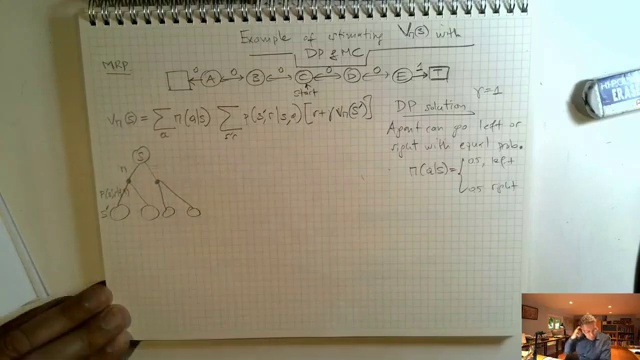 Example of estimating Vπ(s) with
DP & MC
MRP
0 A 0 B 0 C 0 D 0 E 1 T
Start
Vπ(s) = Σ_a π(a|s) Σ_s'r p(s',r|s,a) [r+γVπ(s')]
DP solution γ=1
Agent can go left or
right with equal prob.
π(a|s) = { 0.5, left
0.5 right
S
π
S'
ERAS